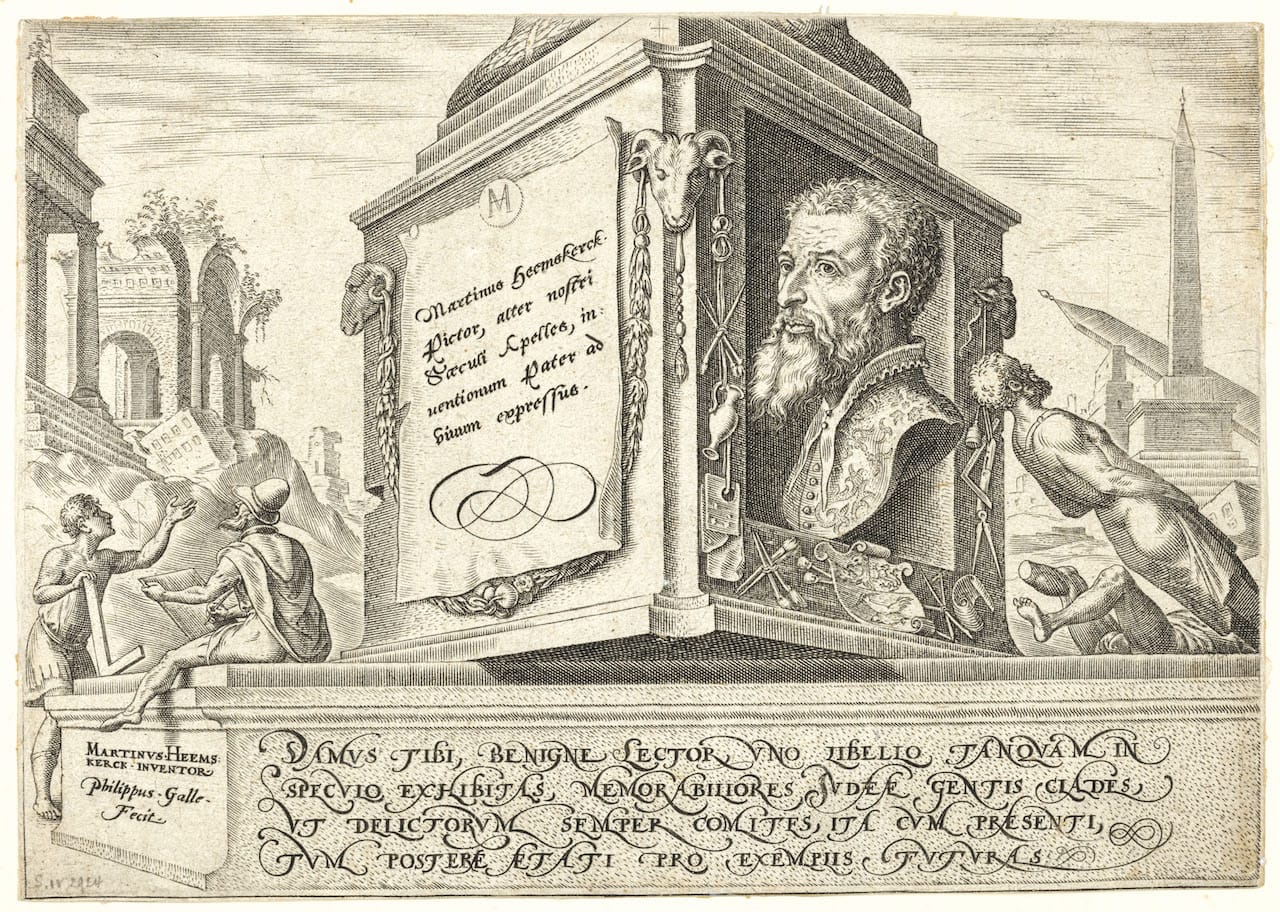 M
Martinus Heemskerck.
Pictor, alter nostri
Sæculi Apelles, in:
uentionum Pater ad
viuum expressus.
MARTINVS·HEEMS
KERCK·INVENTOR
Philippus·Galle·
Fecit
DAMVS TIBI, BENIGNE LECTOR, VNO LIBELLO, TANQVAM IN
SPECVLO, EXHIBITAS, MEMORABILIORES JVDÆÆ GENTIS CLADES,
VT DELICTORVM SEMPER COMITES, ITA CVM PRÆSENTI,
TVM POSTERÆ ÆTATI PRO EXEMPLIS FVTVRAS.
S.IV 2924